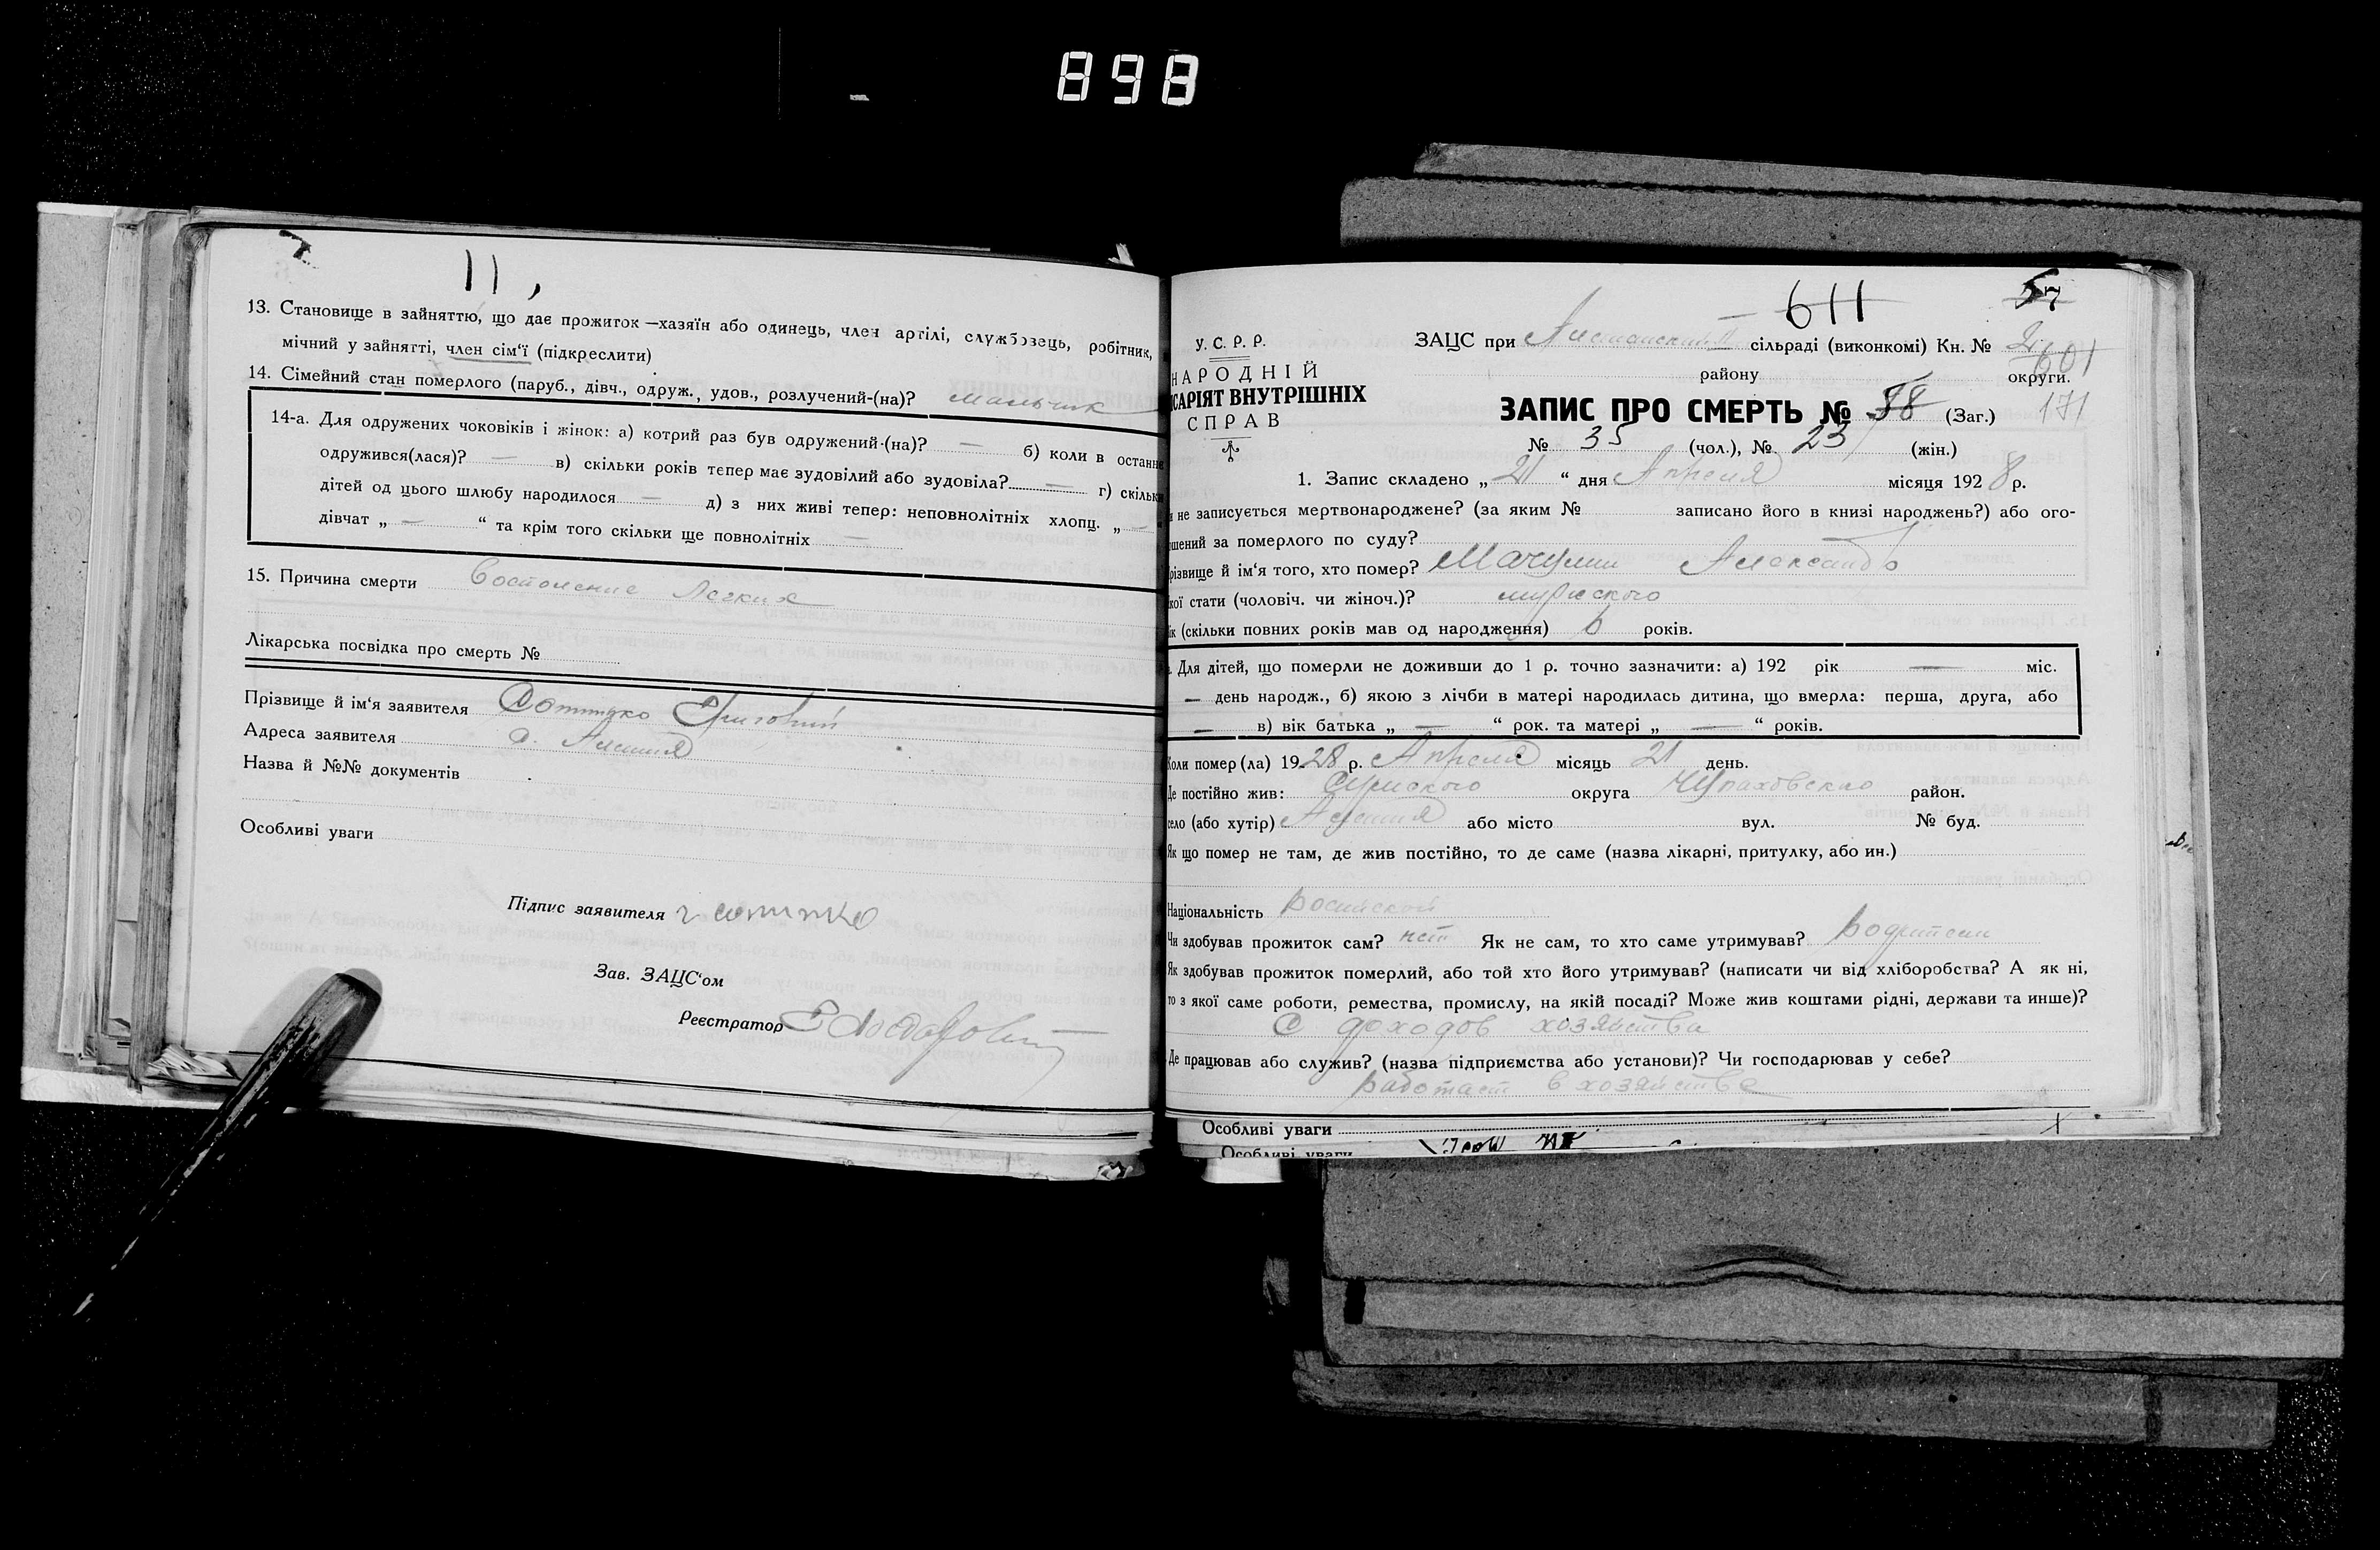 898
11,
13. Становище в зайняттю, що дає прожиток—хазяїн або одинець, член артілі, службовець, робітник,
мічний у зайнятті, член сім'ї (підкреслити)
14. Сімейний стан померлого (паруб., дівч., одруж., удов., розлучений-(на)? мальчик
14-а. Для одружених чоковіків і жінок: а) котрий раз був одружений-(на)? — б) коли в останн
одружився(лася)? — в) скільки років тепер має зудовілий або зудовіла? — г) скільк
дітей од цього шлюбу народилося — д) з них живі тепер: неповнолітніх хлопц. „ —
дівчат „ — “ та крім того скільки ще повнолітніх —
15. Причина смерти Востоление Легких
Лікарська посвідка про смерть №
Прізвище й ім'я заявителя Григорий
Адреса заявителя с. Алешня
Назва й №№ документів
Особливі уваги
Підпис заявителя
Зав. ЗАЦС'ом
Реєстратор
611
57
У. С. Р. Р.
НАРОДНІЙ
САРІЯТ ВНУТРІШНІХ
СПРАВ
ЗАЦС при сільраді (виконкомі) Кн. № 2
601
району округи.
ЗАПИС ПРО СМЕРТЬ № 58 (Заг.) 171
№ 35 (чол.), № 23 (жін.)
1. Запис складено „ 21 “ дня Апреля місяця 1928 р.
и не записується мертвонароджене? (за яким № записано його в книзі народжень?) або ого-
ошений за померлого по суду?
різвище й ім'я того, хто помер? Мачулин Александр
кої стати (чоловіч. чи жіноч.)? мужского
ік (скільки повних років мав од народження) 6 років.
Для дітей, що померли не доживши до 1 р. точно зазначити: а) 192 рік — міс.
— день народж., б) якою з лічби в матері народилась дитина, що вмерла: перша, друга, або
— в) вік батька „ — “ рок. та матері „ — “ років.
Коли помер(ла) 1928 р. Апреля місяць 21 день.
Де постійно жив: Сумского округа Чупаховского район.
село (або хутір) Алешня або місто вул. № буд.
Як що помер не там, де жив постійно, то де саме (назва лікарні, притулку, або ин.)
Національність
Чи здобував прожиток сам? нет Як не сам, то хто саме утримував? родители
Як здобував прожиток померлий, або той хто його утримував? (написати чи від хліборобства? А як ні,
то з якої саме роботи, ремества, промислу, на якій посаді? Може жив коштами рідні, держави та инше)?
С доходов хозяйства
Де працював або служив? (назва підприємства або установи)? Чи господарював у себе?
работает в хозяйстве
Особливі уваги
Особливі уваги